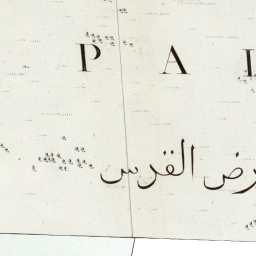 P A L
رض القدس